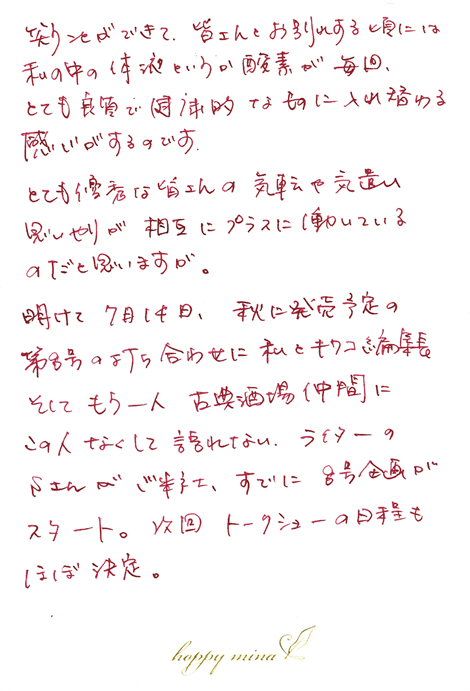 笑うことができて、皆さんとお別れする頃には
私の中の体液というか酸素が毎回、
とても良質で健康的なものに入れ替わる
感じがするのです。
とても優秀な皆さんの気転や気遣い
思いやりが相互にプラスに働いている
のだと思いますが。
明けて7月14日、秋に発売予定の
第8号の打ち合わせに私とキワコ編集長
そしてもう一人古典酒場仲間に
この人なくして語れない、ライターの
さんがご来社、すでに8号企画が
スタート。次回トークショーの日程も
ほぼ決定。
happy mina